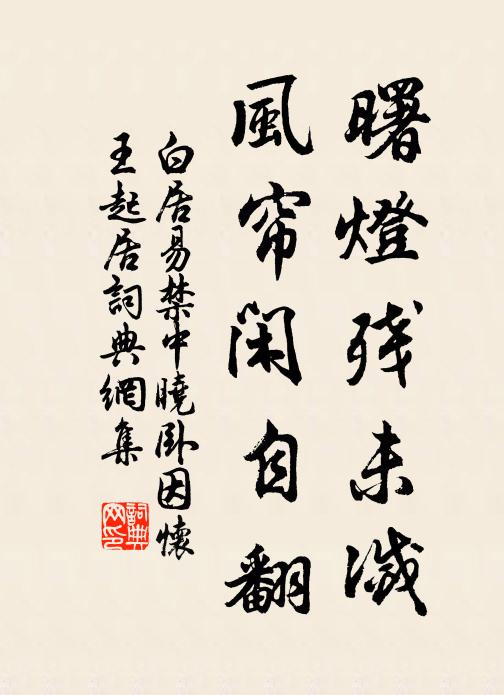 曙燈残未滅
風帘閑自翻
白居易禁中曉卧因懷
王起居詞典網集
詞典
网印